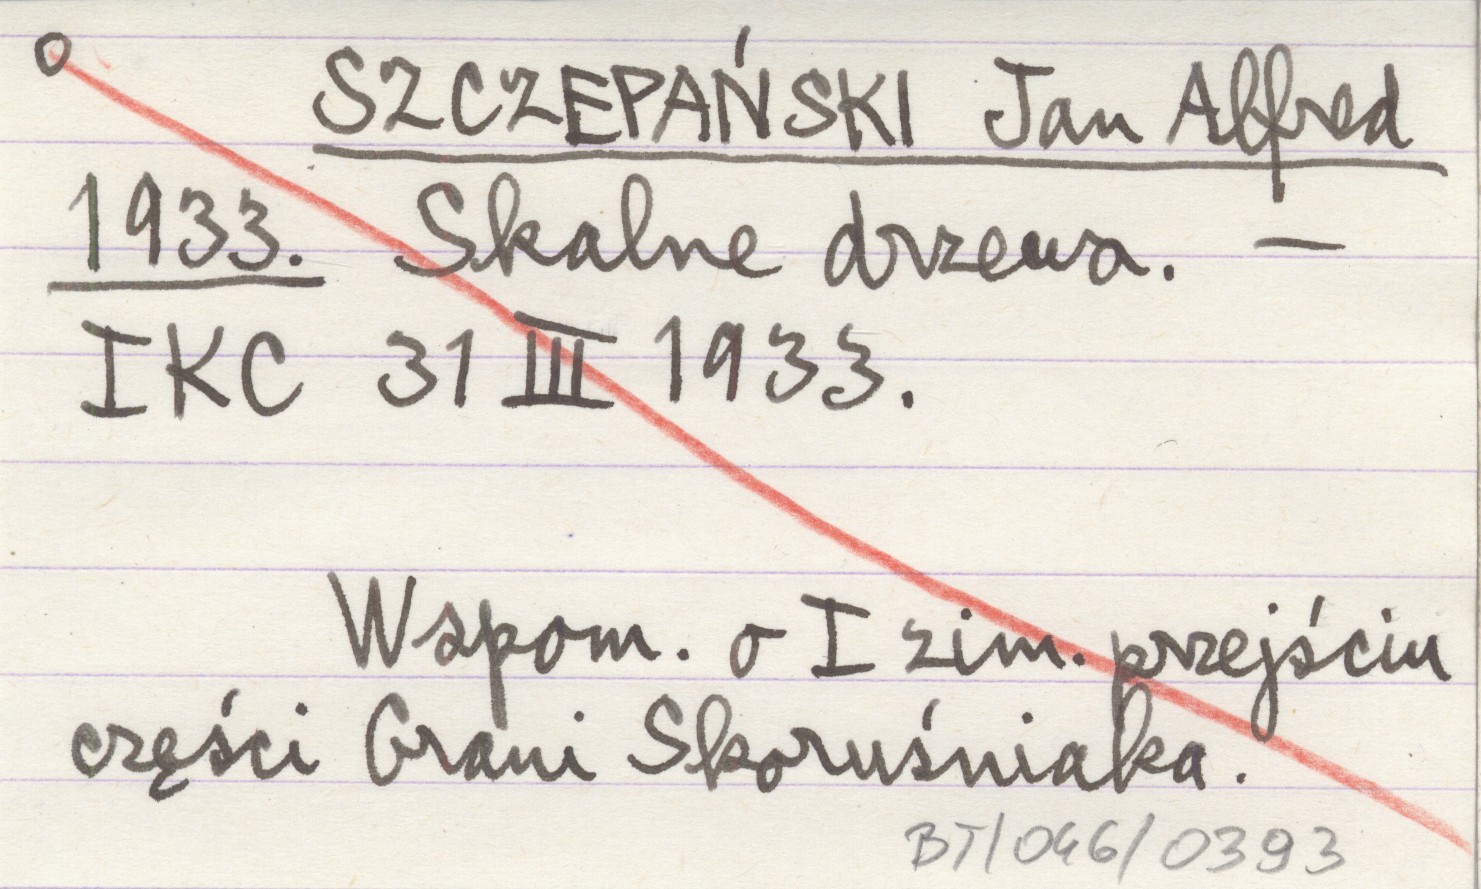 O SZCZEPAŃSKI Jan Alfred
1933. Skalne drzewa. —
IKC 31 III 1933.
Wspom. o I zim. przejściu
części Grani Skoruśniaka.
BT/046/0393